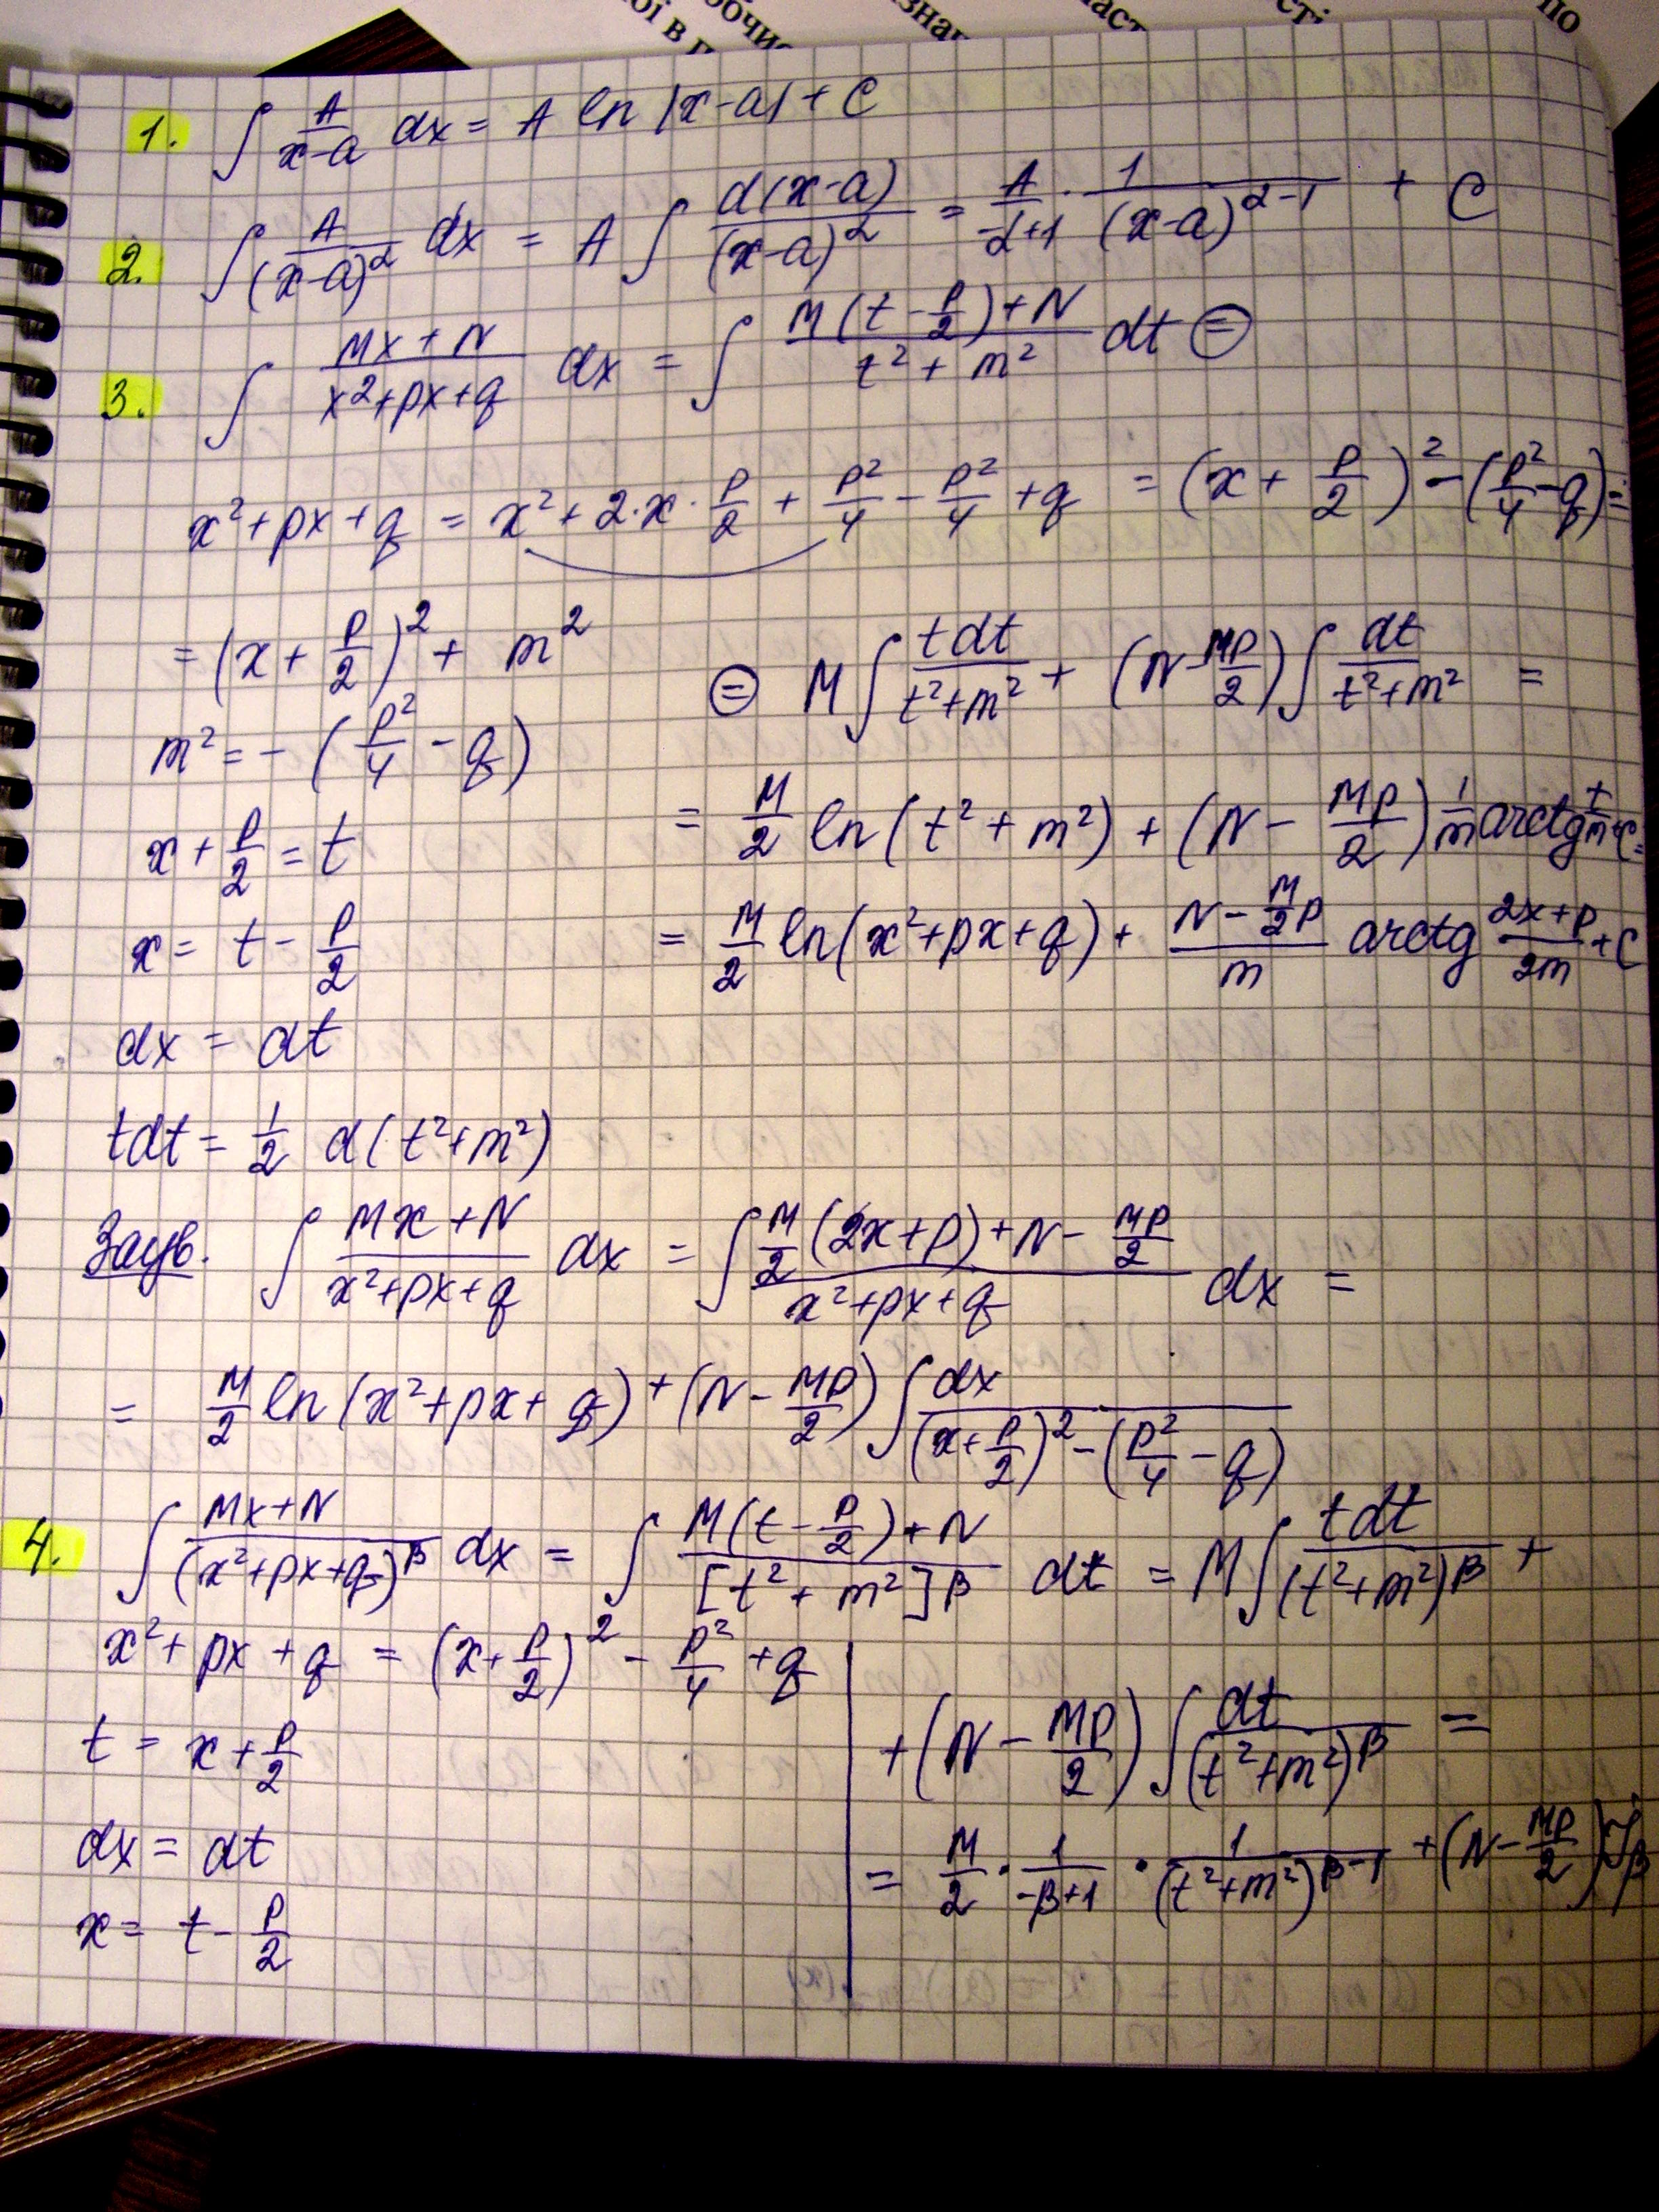 очис
знан
част
сті
по
ої в п
1. ∫ A/(x-a) dx = A ln |x-a| + C
2. ∫ A/(x-a)^α dx = A ∫ d(x-a)/(x-a)^α = A/(-α+1) · 1/(x-a)^(α-1) + C
3. ∫ (Mx+N)/(x²+px+q) dx = ∫ (M(t - p/2)+N)/(t²+m²) dt ⊜
x²+px+q = x²+2·x·p/2 + p²/4 - p²/4 + q = (x + p/2)² - (p²/4 - q) =
= (x + p/2)² + m²
m² = - (p²/4 - q)
x + p/2 = t
x = t - p/2
dx = dt
tdt = 1/2 d(t²+m²)
⊜ M ∫ tdt/(t²+m²) + (N - Mp/2) ∫ dt/(t²+m²) =
= M/2 ln(t²+m²) + (N - Mp/2) 1/m arctg t/m + C =
= M/2 ln(x²+px+q) + (N - M/2 p)/m arctg (2x+p)/2m + C
Заув. ∫ (Mx+N)/(x²+px+q) dx = ∫ (M/2 (2x+p) + N - Mp/2)/(x²+px+q) dx =
= M/2 ln(x²+px+q) + (N - Mp/2) ∫ dx/((x+p/2)² - (p²/4 - q))
4. ∫ (Mx+N)/(x²+px+q)^β dx = ∫ (M(t - p/2)+N)/[t²+m²]^β dt = M ∫ tdt/(t²+m²)^β +
x²+px+q = (x+p/2)² - p²/4 + q
t = x + p/2
dx = dt
x = t - p/2
+ (N - Mp/2) ∫ dt/(t²+m²)^β =
= M/2 · 1/(-β+1) · 1/(t²+m²)^(β-1) + (N - Mp/2) J_β